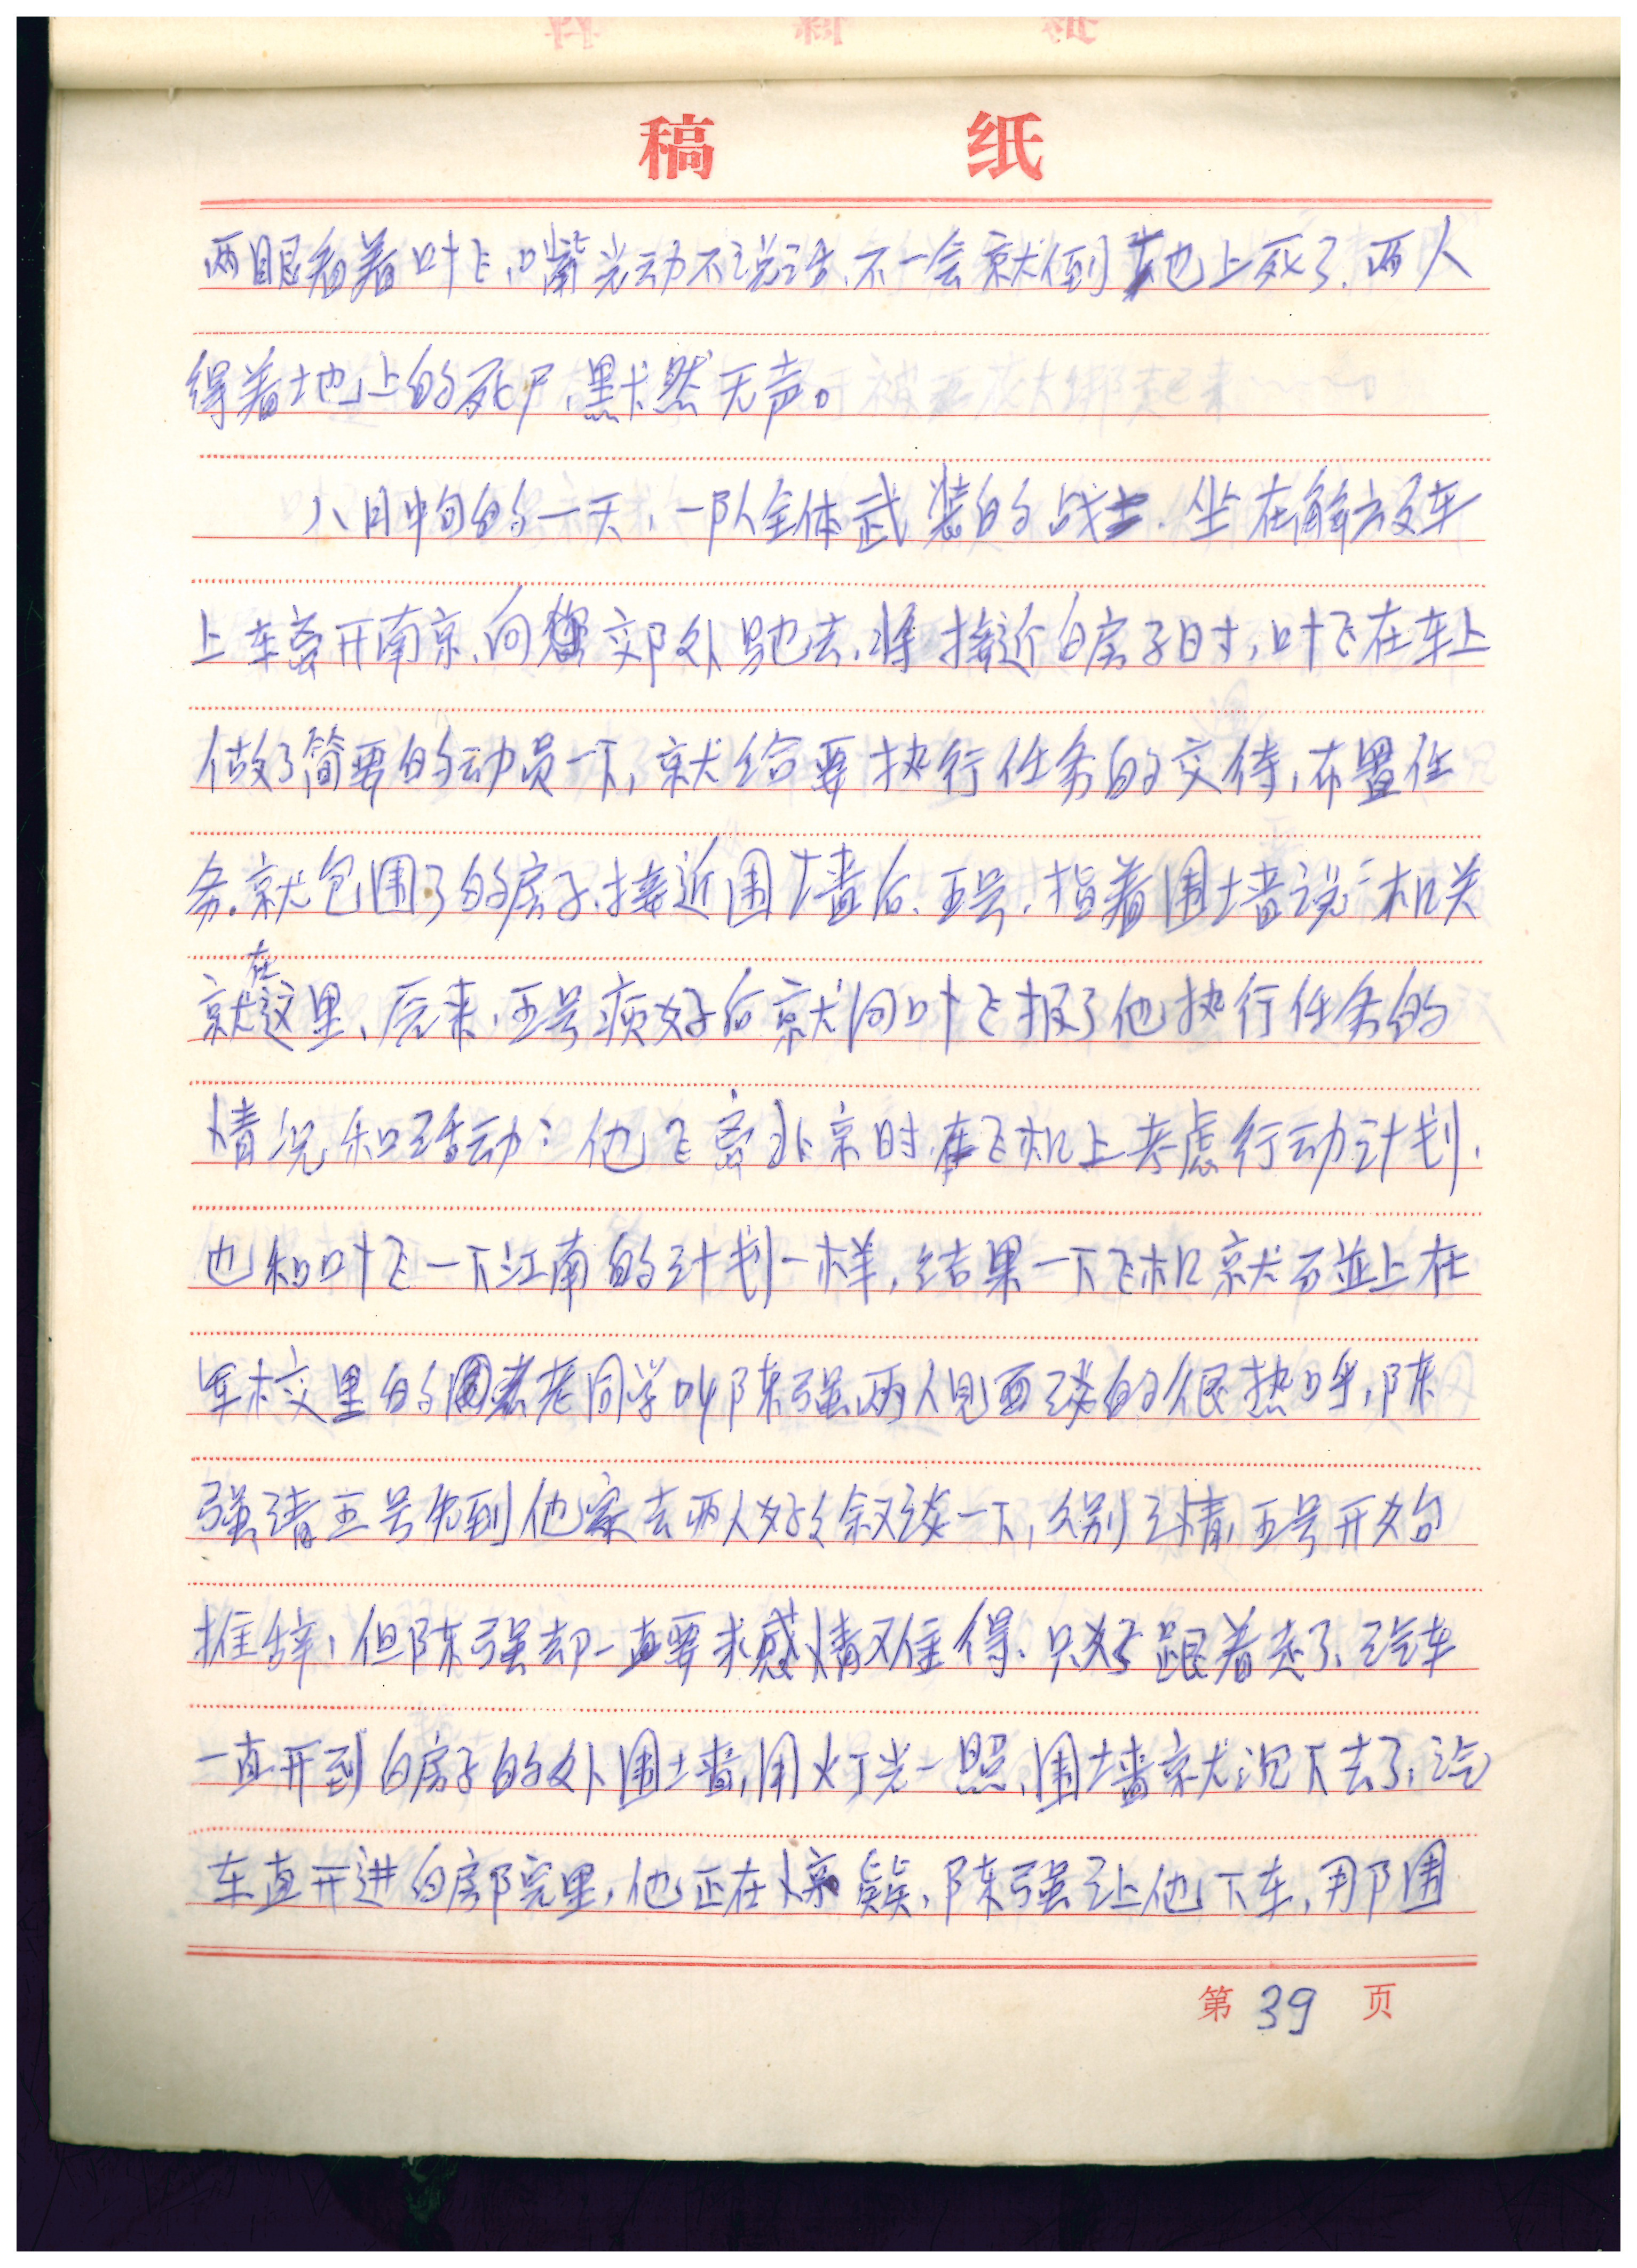 稿 纸
两眼看着叶飞,嘴光动不说话、不一会就倒地上死了.两人
得着地上的死尸、默然无声。
八月中旬的一天,一队全体武装的战士.坐在解放车
上车离开南京、向郊外驰去.将接近白房子时,叶飞在车上
做了简要的动员一下,就给要执行任务的交待,布置任
务.就包围了白房子.接近围墙后、五号.指着围墙说:机关
就在这里、后来.五号病好后就向叶飞报了他执行任务的
情况和活动:他飞离北京时.在飞机上考虑行动计划.
也和叶飞一下江南的计划一样,结果一下飞机就碰上在
军校里的老同学叫陈强,两人见面谈的很热呼,陈
强请五号先到他家去两人好好叙谈一下,久别之情,五号开始
推辞,但陈强却一直要求感情又难得、只好跟着走了、汽车
一直开到白房子的外围墙,用灯光一照、围墙就沉下去了、汽
车直开进白房院里,他正在惊疑,陈强让他下车,那围
第 39 页